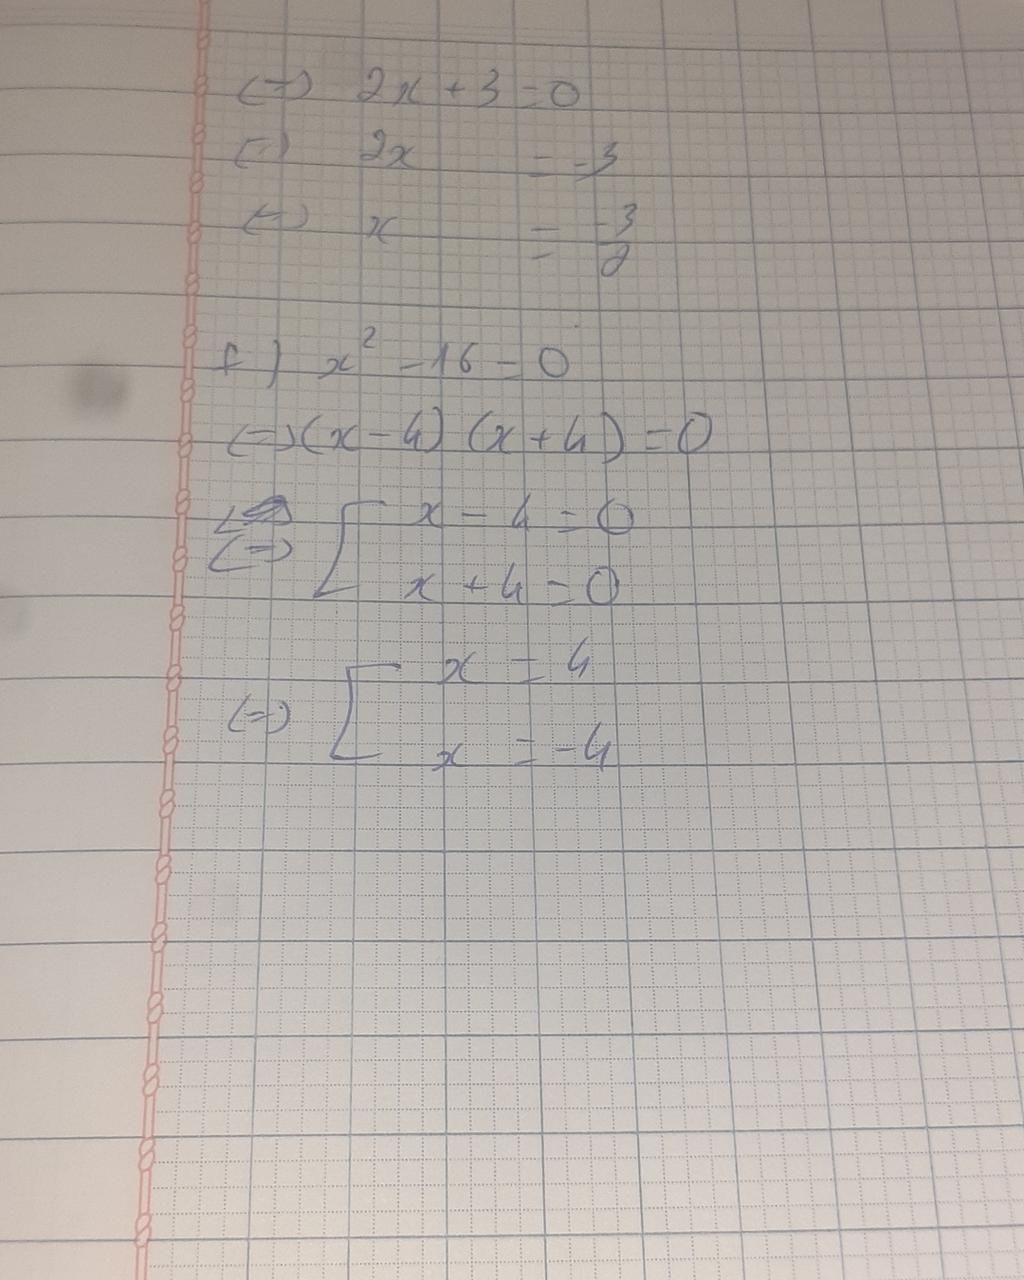 (=) 2x + 3 = 0
(=) 2x = -3
(=) x = -3/2
f) x² - 16 = 0
(=) (x - 4) (x + 4) = 0
(=) [ x - 4 = 0
x + 4 = 0
(=) [ x = 4
x = -4